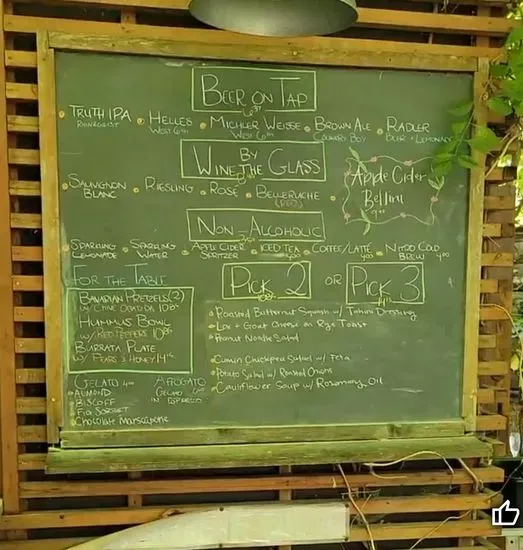 BEER ON TAP
TRUTH IPA HELLES MICHLER WEISSE BROWN ALE RADLER
RHINEGEIST WEST 6TH WEST 6TH COUNTRY BOY BEER + LEMONADE
BY
WINE THE GLASS
SAUVIGNON BLANC RIESLING ROSÉ BELLERUCHE (RED)
Apple Cider
Bellini
NON-ALCOHOLIC
SPARKLING LEMONADE SPARKLING WATER APPLE CIDER SPRITZER ICED TEA COFFEE/LATTE NITRO COLD BREW
FOR THE TABLE
BAVARIAN PRETZELS (2)
HUMMUS BOWL
W/ RED PEPPERS
BURRATA PLATE
W/ PEARS & HONEY 14
GELATO
ALMOND
BISCOFF
FIG SORBET
Chocolate Marscapone
AFFOGATO
GELATO
IN ESPRESSO
PICK 2 OR PICK 3
Roasted Butternut Squash w/ Tahini Dressing
Lox + Goat Cheese on Rye Toast
Peanut Noodle Salad
Cumin Chickpea Salad w/ Feta
Potato Salad w/ Roasted Onions
Cauliflower Soup w/ Rosemary Oil